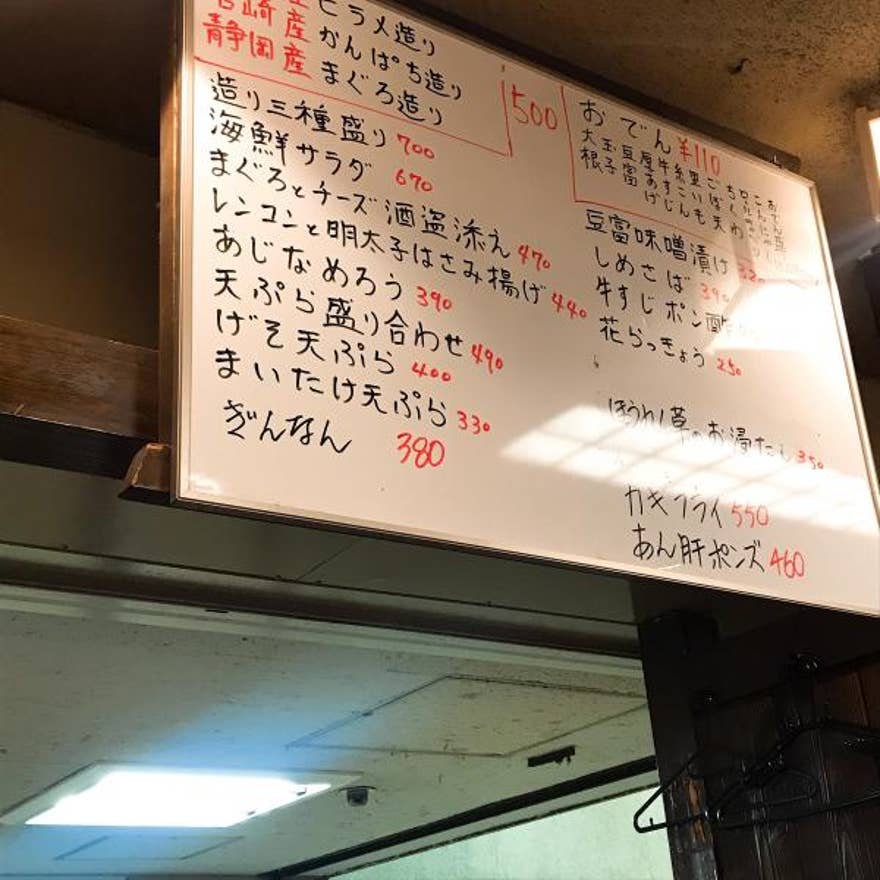 ヒラメ造り
宮崎産 かんぱち造り
静岡産 まぐろ造り
500
造り三種盛り 700
海鮮サラダ 670
まぐろとチーズ酒盗添え 470
レンコンと明太子はさみ揚げ 440
あじなめろう 390
天ぷら盛り合わせ 490
げそ天ぷら 400
まいたけ天ぷら 330
ぎんなん 380
おでん ¥110
大根
玉子
豆富
厚あげ
牛すじ
糸こん
里いも
ごぼ天
ちくわ
豆富味噌漬け 320
しめさば 390
牛すじポン酢
花らっきょう 250
ほうれん草のお浸たし 350
カキフライ 550
あん肝ポンズ 460